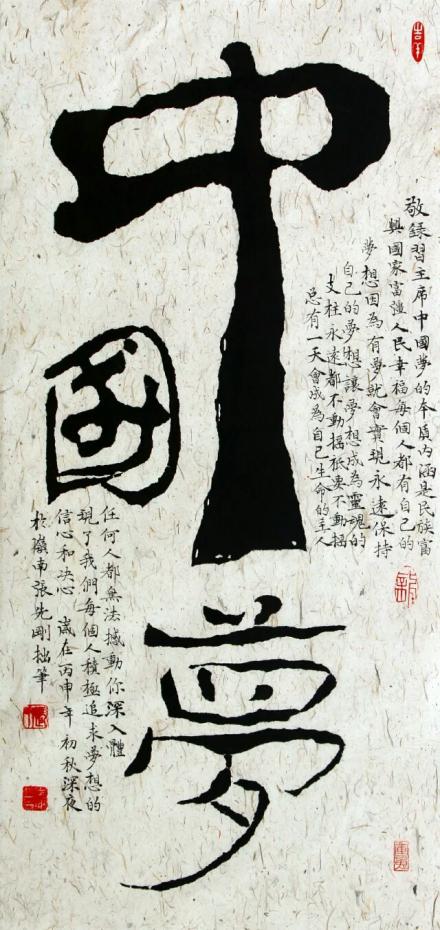 中國夢
敬録習主席中國夢的本質内涵是民族富
興國家富强人民幸福每個人都有自己的
夢想因為有夢就會實現永遠保持
自己的夢想讓夢想成為靈魂的
支柱永遠都不動摇衹要不動摇
总有一天會成為自己生命的主人
任何人都無法撼動你深入體
現了我們每個人積極追求夢想的
信心和决心 歲在丙申年初秋深夜
於嶺南張先剛拙筆
吉羊